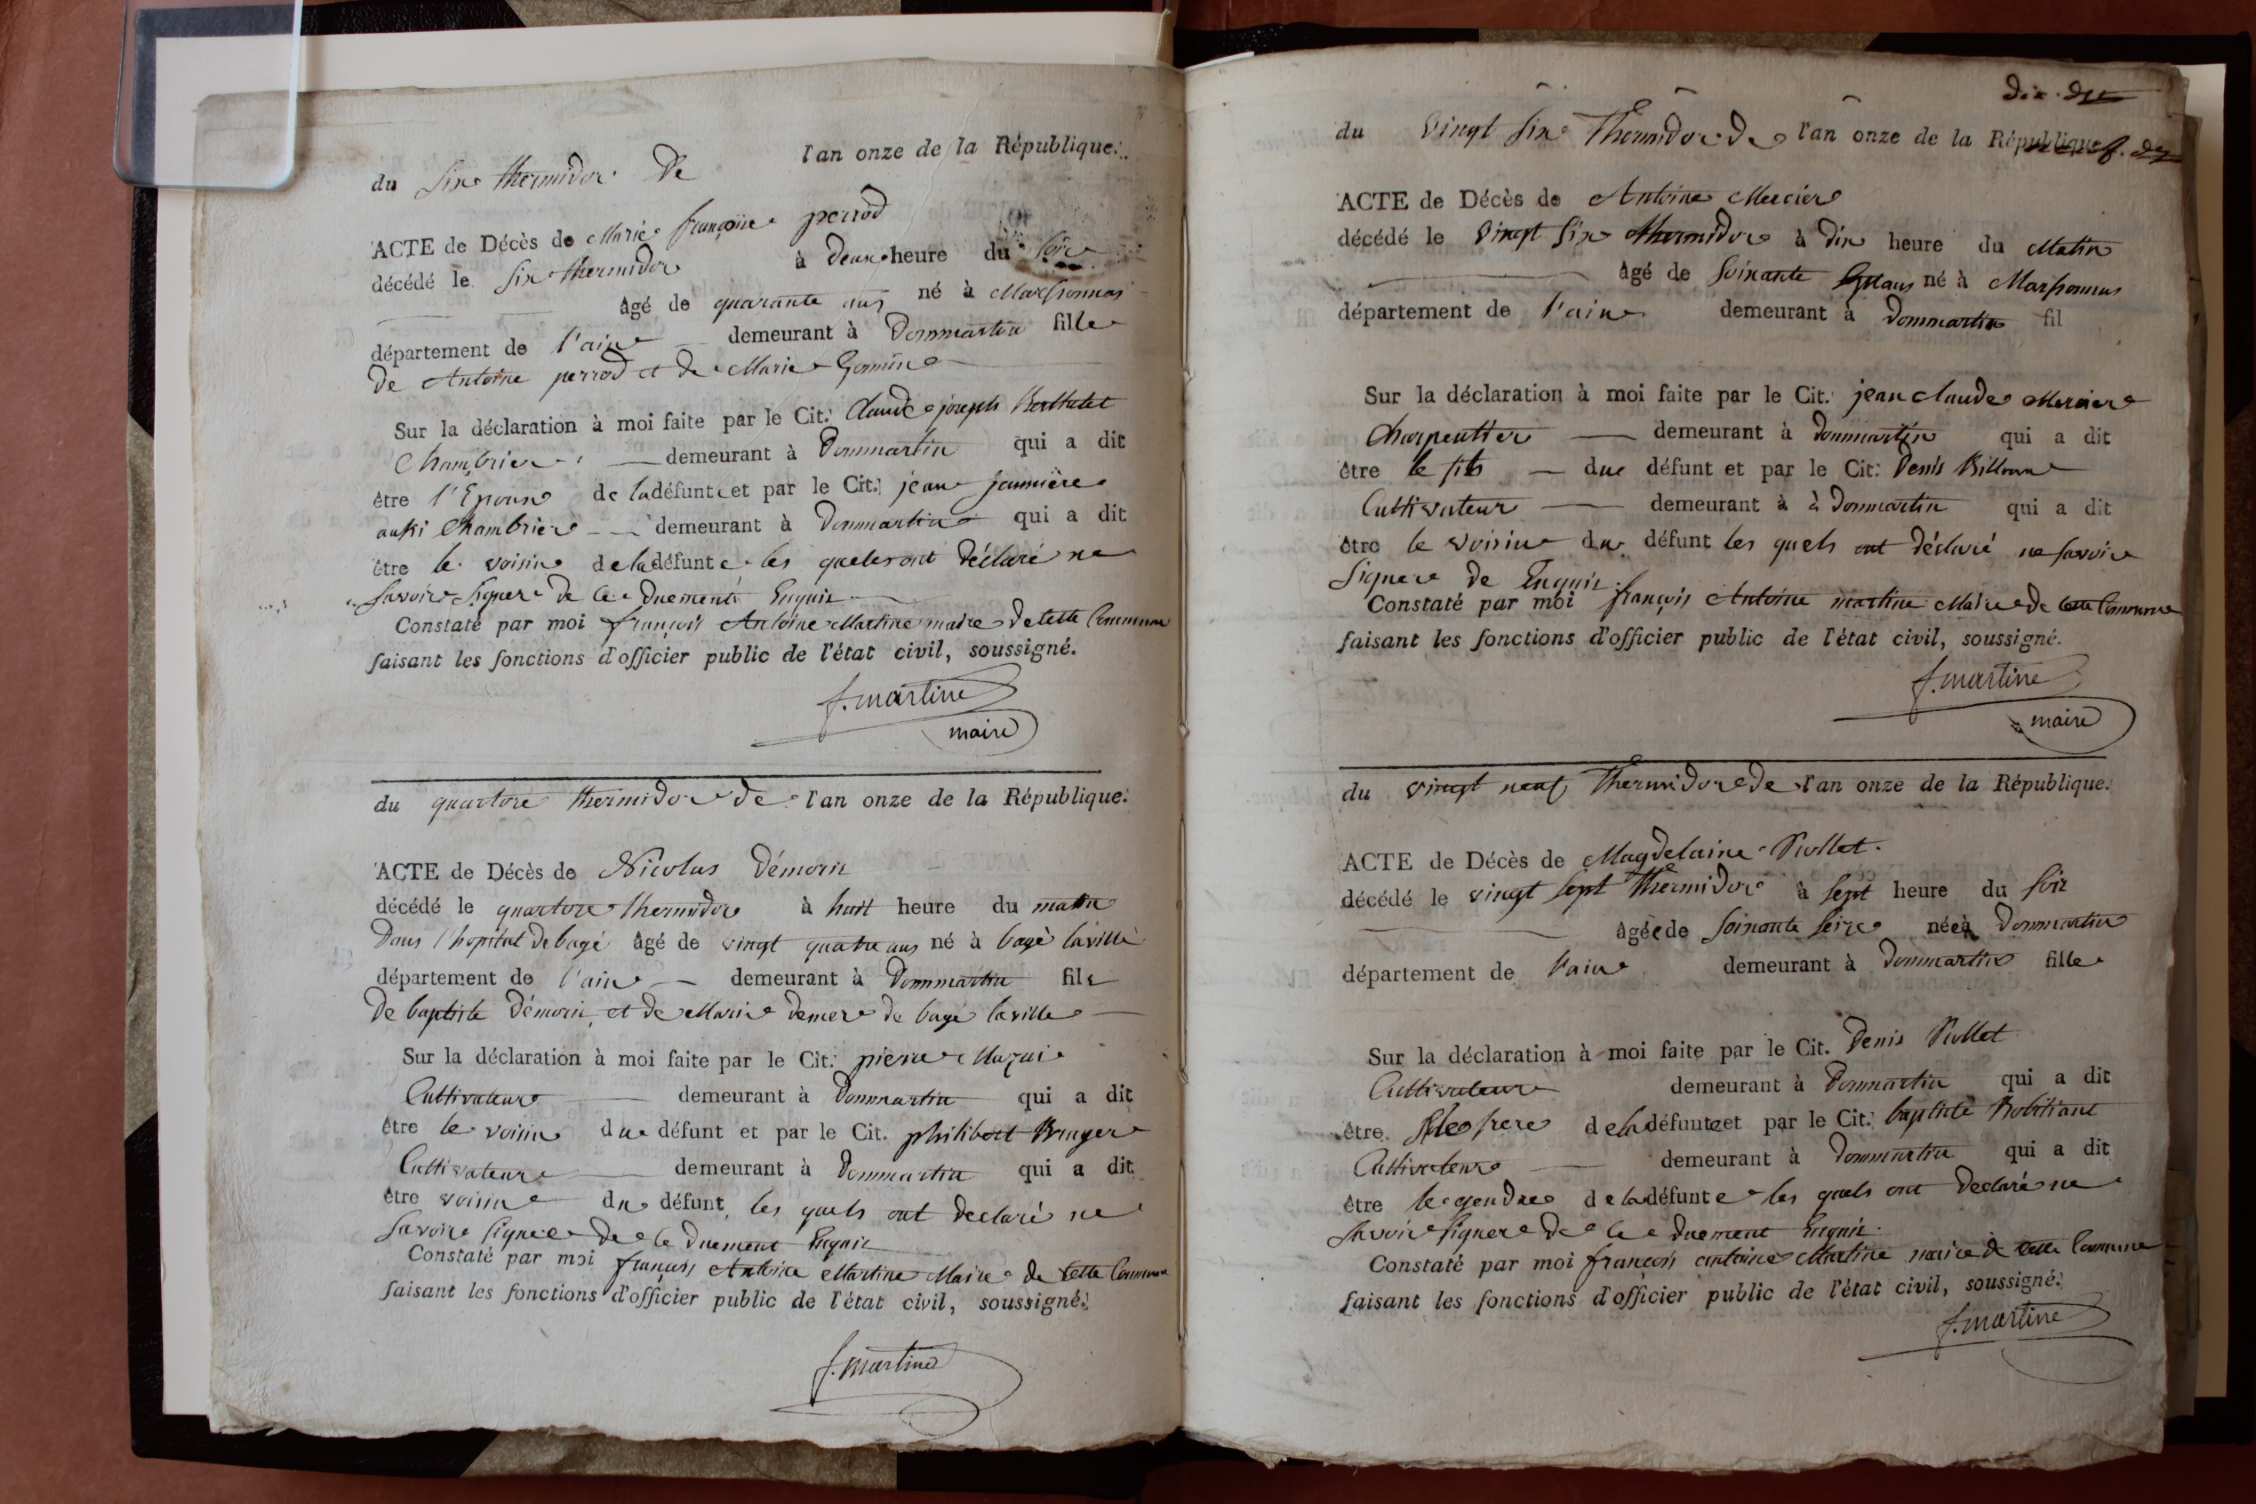 du Six thermidor De l'an onze de la République.
ACTE de Décès de Marie françoise perrod
décédé le Six thermidor à deux heure du Soir
âgé de quarante ans né à Marsonnas
département de l'ain demeurant à Dommartin fille
De Antoine perrod et de Marie Gomin
Sur la déclaration à moi faite par le Cit. Claude joseph Berthelet
Chambrier demeurant à Dommartin qui a dit
être l'Epoux de la défunte et par le Cit. jean
aussi Chambrier demeurant à Dommartin qui a dit
être le voisin de la défunte les quels ont Déclaré ne
Savoir Signer De Ce Duement Enquis
Constaté par moi françois Antoine Martine maire De cette Commune
faisant les fonctions d'officier public de l'état civil, soussigné.
f. martine
maire
du quartore thermidor de l'an onze de la République.
ACTE de Décès de Nicolas Démoris
décédé le quartore thermidor à huit heure du matin
Dans l'hopital De bagé âgé de vingt quatre ans né à bagé laville
département de l'ain demeurant à Dommartin fils
De baptiste Démoris et de Marie demer de bagé laville
Sur la déclaration à moi faite par le Cit. pierre
Cultivateur demeurant à Dommartin qui a dit
être le voisin du défunt et par le Cit. philibert Bruyer
Cultivateur demeurant à Dommartin qui a dit
être voisin du défunt les quels ont declaré ne
Savoir Signer De Ce Duement Enquis
Constaté par moi françois Antoine Martine Maire de Cette Commune
faisant les fonctions d'officier public de l'état civil, soussigné.
f. martine
dix
du vingt Six Thermidor de l'an onze de la République
ACTE de Décès de Antoine Mercier
décédé le vingt Six thermidor à dix heure du Matin
âgé de Soixante ans né à Marsonnas
département de l'ain demeurant à Dommartin fil
Sur la déclaration à moi faite par le Cit. jean claude Mercier
Charpentier demeurant à Dommartin qui a dit
être le fils due défunt et par le Cit: Denis Billoux
Cultivateur demeurant à à Dommartin qui a dit
être le voisin du défunt les quels ont déclaré ne Savoir
Signer de Enquis.
Constaté par moi françois Antoine martine Maire de cette Commune
faisant les fonctions d'officier public de l'état civil, soussigné.
f. martine
maire
du vingt neuf Thermidor de l'an onze de la République.
ACTE de Décès de Magdelaine Piollet.
décédé le vingt Sept Thermidor à Sept heure du Soir
âgée de Soixante Seize née à Dommartin
département de l'ain demeurant à Dommartin fille
Sur la déclaration à moi faite par le Cit. Denis Piollet
Cultivateur demeurant à Dommartin qui a dit
être le frere de la défunte et par le Cit. baptiste
Cultivateur demeurant à Dommartin qui a dit
être le gendre de la défunte les quels ont Declaré ne
Savoir Signer De Ce duement Enquis.
Constaté par moi françois antoine Martine maire de Cette Commune
faisant les fonctions d'officier public de l'état civil, soussigné.
f. martine